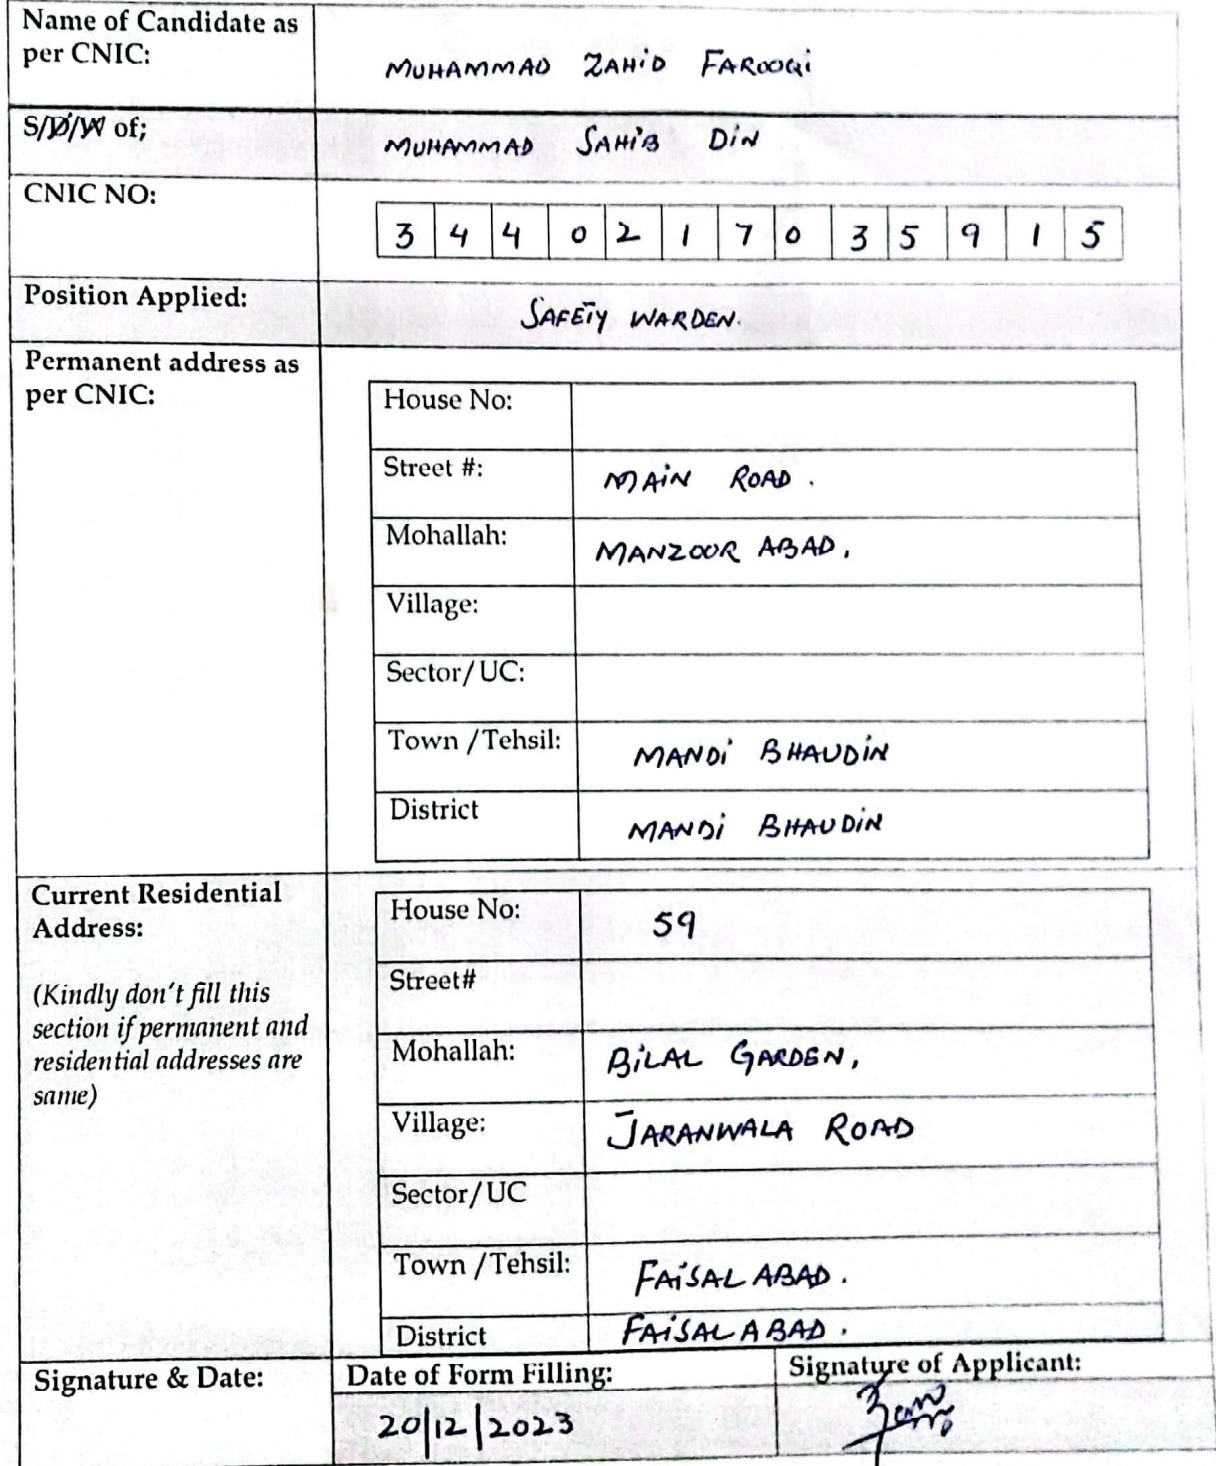 Name of Candidate as
per CNIC:
MUHAMMAD ZAHID FAROOQI
S/D/W of;
MUHAMMAD SAHIB DIN
CNIC NO:
3 4 4 0 2 1 7 0 3 5 9 1 5
Position Applied:
SAFETY WARDEN.
Permanent address as
per CNIC:
House No:
Street #: MAIN ROAD.
Mohallah: MANZOOR ABAD,
Village:
Sector/UC:
Town /Tehsil: MANDI BHAUDIN
District MANDI BHAUDIN
Current Residential
Address:
(Kindly don't fill this
section if permanent and
residential addresses are
same)
House No: 59
Street#
Mohallah: BILAL GARDEN,
Village: JARANWALA ROAD
Sector/UC
Town /Tehsil: FAISALABAD.
District FAISALABAD.
Signature & Date:
Date of Form Filling:
20/12/2023
Signature of Applicant: